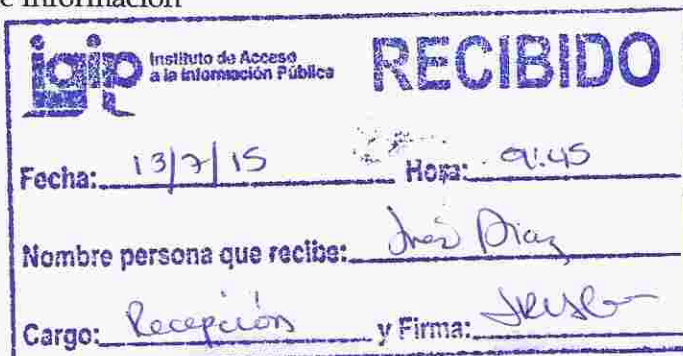 e Información
iaip Instituto de Acceso
a la Información Pública
RECIBIDO
Fecha: 13/7/15 Hora: 9:45
Nombre persona que recibe: Inés Díaz
Cargo: Recepción y Firma: